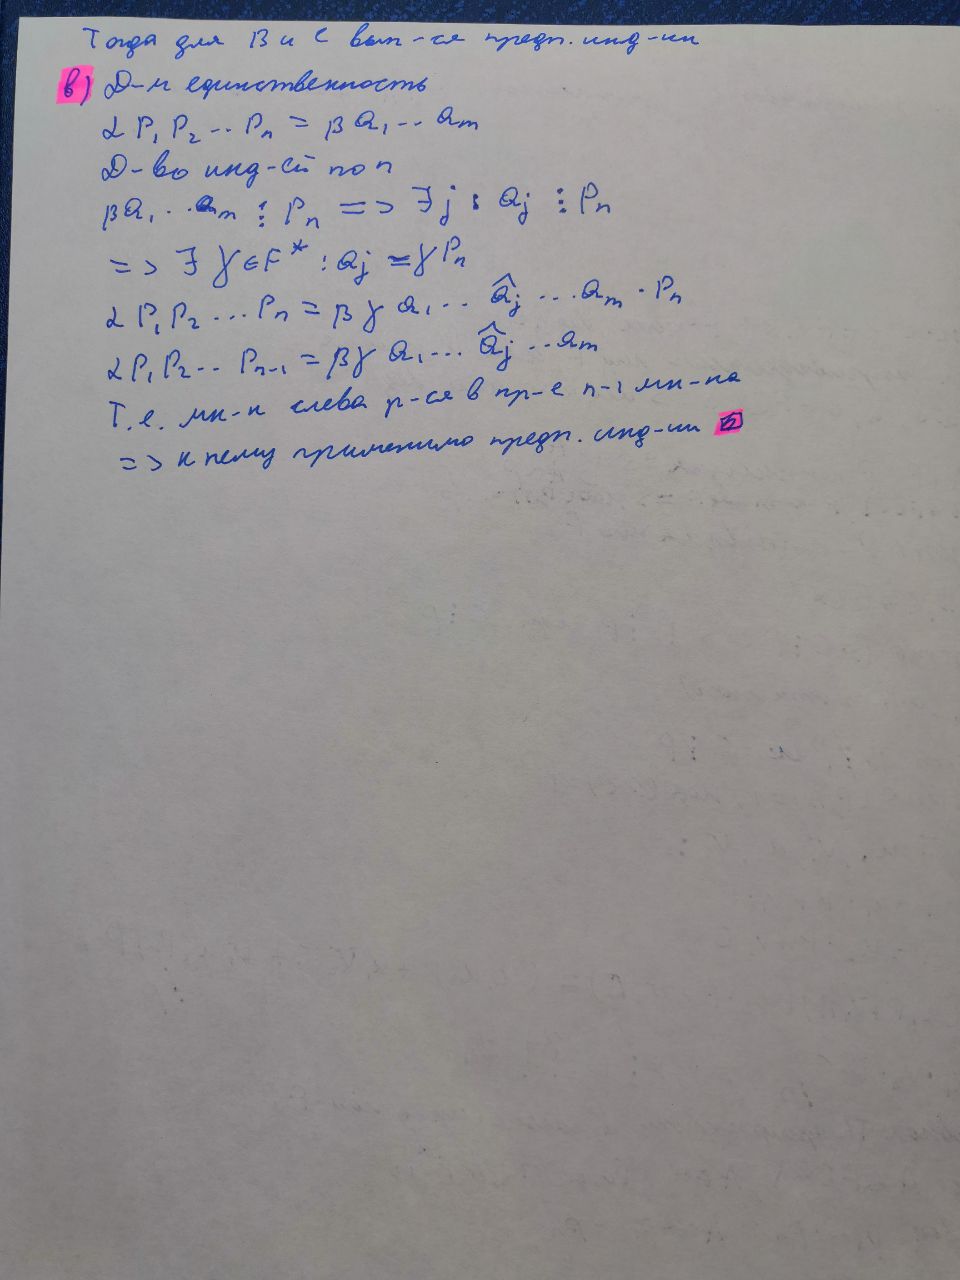 Тогда для B и C вып-ся предп. инд-ии
в) Д-м единственность
αP₁P₂...Pₙ = βQ₁...Qₘ
Д-во инд-ей по n
βQ₁...Qₘ ⋮ Pₙ => ∃j : Qⱼ ⋮ Pₙ
=> ∃ γ ∈ F* : Qⱼ = γPₙ
αP₁P₂...Pₙ = βγ Q₁...Q̂ⱼ...Qₘ · Pₙ
αP₁P₂...Pₙ₋₁ = βγ Q₁...Q̂ⱼ...Qₘ
Т.е. мн-н слева р-ся в пр-е n-1 мн-на
=> к нему применимо предп. инд-ии